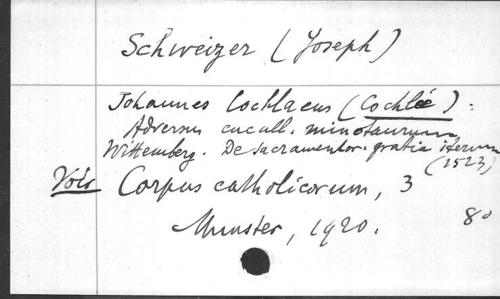 Schweizer (Joseph)
Johannes Cochlaeus (Cochlée) :
Adversus cucull. minotaurum
Wittemberg. De sacramentor. gratia iterum
(1523)
Voir Corpus catholicorum, 3
Munster, 1920. 8o